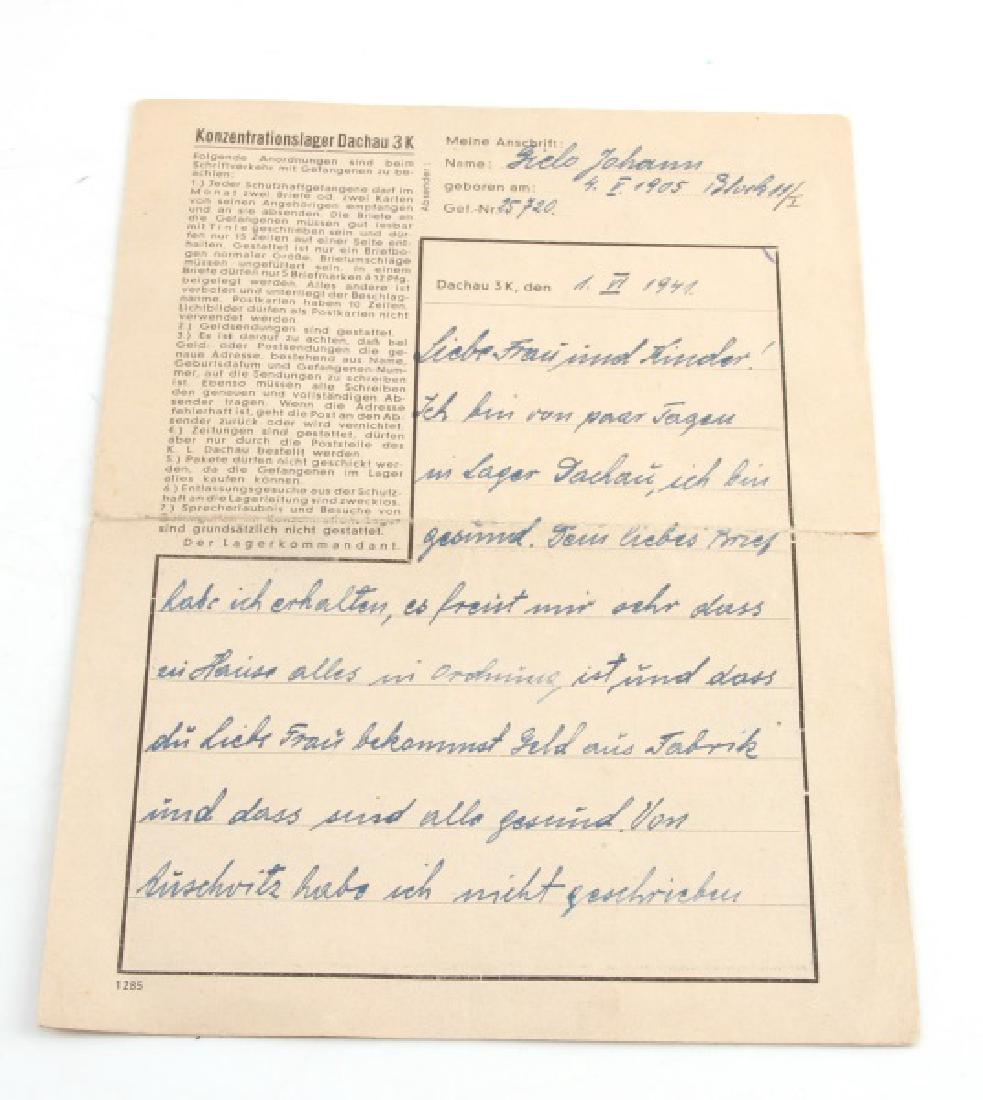 Konzentrationslager Dachau 3 K
Folgende Anordnungen sind beim
Schriftverkehr mit Gefangenen zu be-
achten:
1.) Jeder Schutzhaftgefangene darf im
Monat zwei Briefe od. zwei Karten
von seinen Angehörigen empfangen
und an sie absenden. Die Briefe an
die Gefangenen müssen gut lesbar
mit Tinte geschrieben sein und dür-
fen nur 15 Zeilen auf einer Seite ent-
halten. Gestattet ist nur ein Briefbo-
gen normaler Größe. Briefumschläge
müssen ungefüttert sein. In einem
Briefe dürfen nur 5 Briefmarken à 12 Pfg.
beigelegt werden. Alles andere ist
verboten und unterliegt der Beschlag-
nahme. Postkarten haben 10 Zeilen.
Lichtbilder dürfen als Postkarten nicht
verwendet werden.
2.) Geldsendungen sind gestattet.
3.) Es ist darauf zu achten, daß bei
Geld- oder Postsendungen die ge-
naue Adresse, bestehend aus Name,
Geburtsdatum und Gefangenen-Num-
mer, auf die Sendungen zu schreiben
ist. Ebenso müssen alle Schreiben
den genauen und vollständigen Ab-
sender tragen. Wenn die Adresse
fehlerhaft ist, geht die Post an den Ab-
sender zurück oder wird vernichtet.
4.) Zeitungen sind gestattet, dürfen
aber nur durch die Poststelle des
K. L. Dachau bestellt werden
5.) Pakete dürfen nicht geschickt wer-
den, da die Gefangenen im Lager
alles kaufen können.
6.) Entlassungsgesuche aus der Schutz-
haft an die Lagerleitung sind zwecklos.
7.) Sprecherlaubnis und Besuche von
Gefangenen im Konzentrations-Lager
sind grundsätzlich nicht gestattet.
Der Lagerkommandant.
Absender:
Meine Anschrift:
Name: Johann
geboren am: 4. V. 1905 Block 11/I
Gef.-Nr. 25720.
Dachau 3 K, den 1. VI 1941.
Liebe Frau und Kinder!
Ich bin von paar Tagen
in Lager Dachau, ich bin
gesund. Dein liebes Brief
habe ich erhalten, es freist mir sehr dass
zu Hause alles in Ordnung ist und dass
du Liebe Frau bekommst Geld aus Fabrik
und dass sind alle gesund. Von
Auschvitz habe ich nicht geschrieben
1285